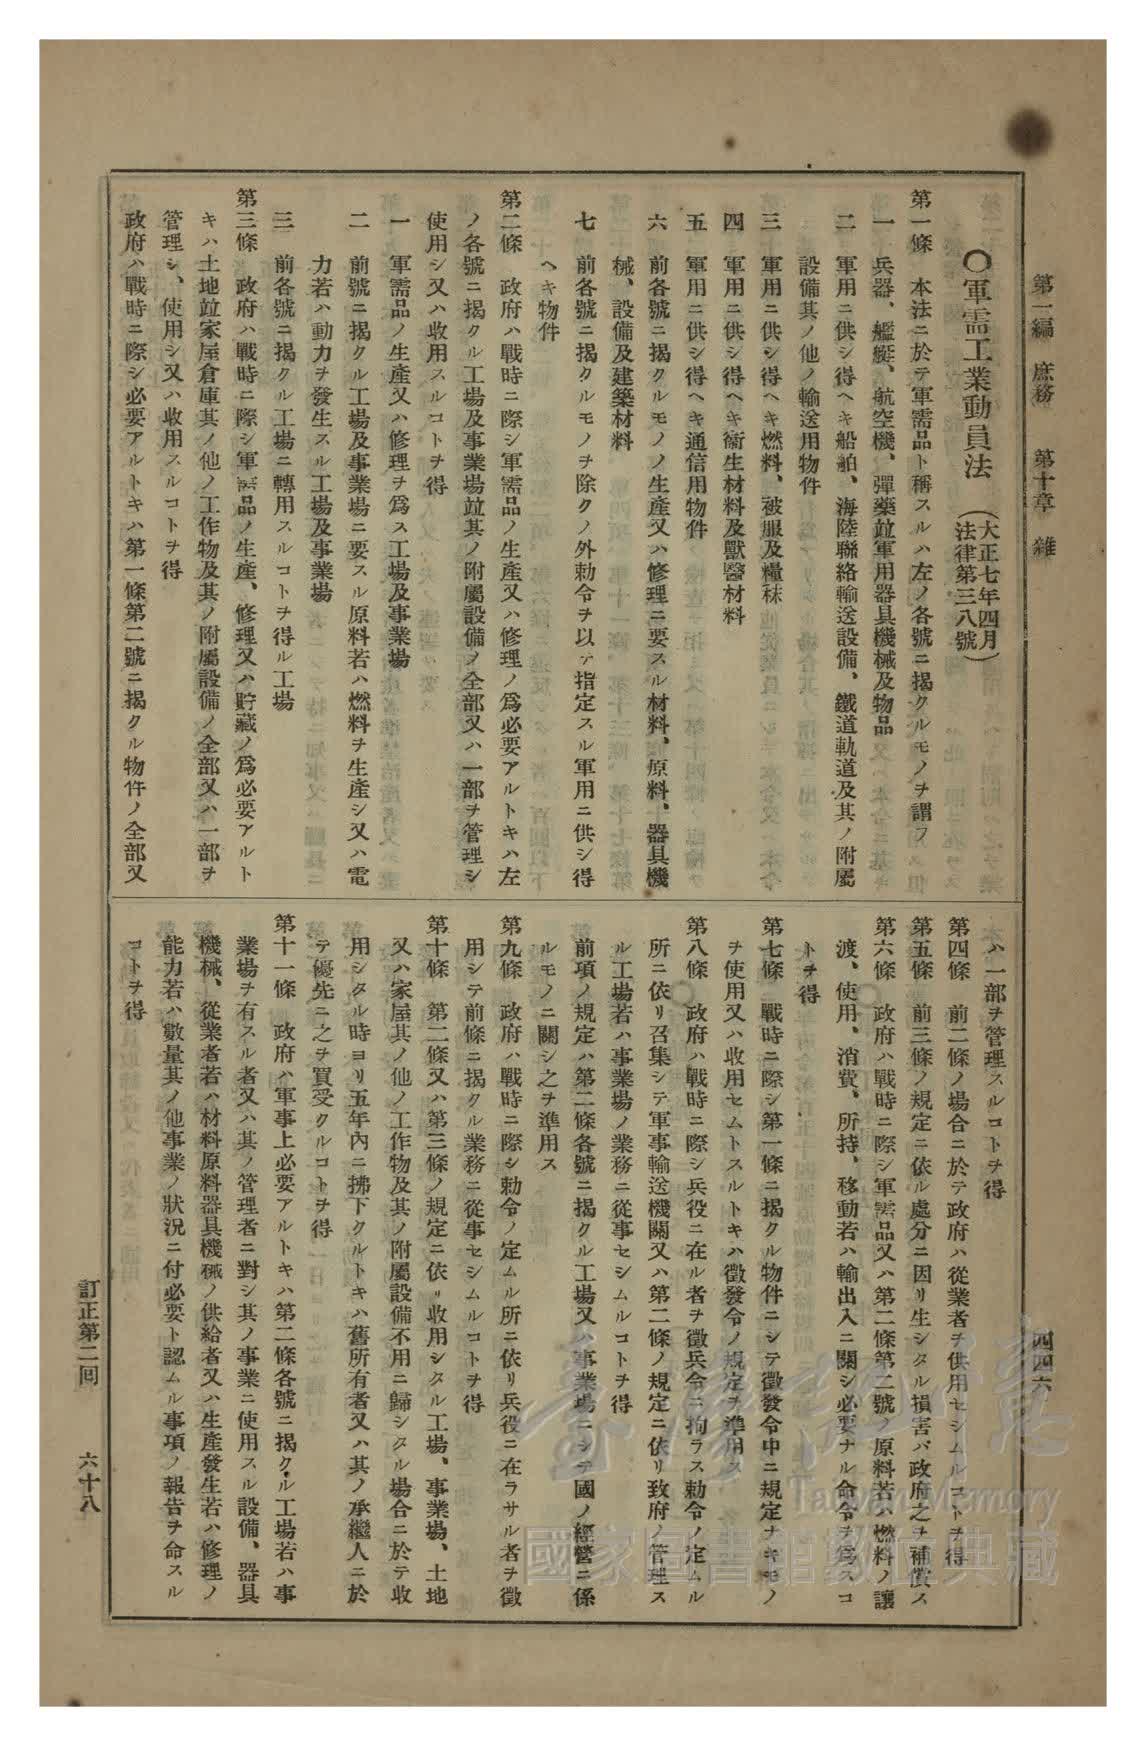 第一編 庶務 第十章 雜
四四六
〇軍需工業動員法
(大正七年四月
法律第三八號)
第一條 本法ニ於テ軍需品ト稱スルハ左ノ各號ニ揭クルモノヲ謂フ
一 兵器、艦艇、航空機、彈藥竝軍用器具機械及物品
二 軍用ニ供シ得ヘキ船舶、海陸聯絡輸送設備、鐵道軌道及其ノ附屬
設備其ノ他ノ輸送用物件
三 軍用ニ供シ得ヘキ燃料、被服及糧秣
四 軍用ニ供シ得ヘキ衞生材料及獸醫材料
五 軍用ニ供シ得ヘキ通信用物件
六 前各號ニ揭クルモノノ生產又ハ修理ニ要スル材料、原料、器具機
械、設備及建築材料
七 前各號ニ揭クルモノヲ除クノ外勅令ヲ以テ指定スル軍用ニ供シ得
ヘキ物件
第二條 政府ハ戰時ニ際シ軍需品ノ生產又ハ修理ノ爲必要アルトキハ左
ノ各號ニ揭クル工場及事業場竝其ノ附屬設備ノ全部又ハ一部ヲ管理シ
使用シ又ハ收用スルコトヲ得
一 軍需品ノ生產又ハ修理ヲ爲ス工場及事業場
二 前號ニ揭クル工場及事業場ニ要スル原料若ハ燃料ヲ生產シ又ハ電
力若ハ動力ヲ發生スル工場及事業場
三 前各號ニ揭クル工場ニ轉用スルコトヲ得ル工場
第三條 政府ハ戰時ニ際シ軍需品ノ生產、修理又ハ貯藏ノ爲必要アルト
キハ土地竝家屋倉庫其ノ他ノ工作物及其ノ附屬設備ノ全部又ハ一部ヲ
管理シ、使用シ又ハ收用スルコトヲ得
政府ハ戰時ニ際シ必要アルトキハ第一條第二號ニ揭クル物件ノ全部又
ハ一部ヲ管理スルコトヲ得
第四條 前二條ノ場合ニ於テ政府ハ從業者ヲ供用セシムルコトヲ得
第五條 前三條ノ規定ニ依ル處分ニ因リ生シタル損害ハ政府之ヲ補償ス
第六條 政府ハ戰時ニ際シ軍需品又ハ第二條第二號ノ原料若ハ燃料ノ讓
渡、使用、消費、所持、移動若ハ輸出入ニ關シ必要ナル命令ヲ爲スコ
トヲ得
第七條 戰時ニ際シ第一條ニ揭クル物件ニシテ徵發令中ニ規定ナキモノ
ヲ使用又ハ收用セムトスルトキハ徵發令ノ規定ヲ準用ス
第八條 政府ハ戰時ニ際シ兵役ニ在ル者ヲ徵兵令ニ拘ラス勅令ノ定ムル
所ニ依リ召集シテ軍事輸送機關又ハ第二條ノ規定ニ依リ政府ノ管理ス
ル工場若ハ事業場ノ業務ニ從事セシムルコトヲ得
前項ノ規定ハ第二條各號ニ揭クル工場又ハ事業場ニシテ國ノ經營ニ係
ルモノニ關シ之ヲ準用ス
第九條 政府ハ戰時ニ際シ勅令ノ定ムル所ニ依リ兵役ニ在ラサル者ヲ徵
用シテ前條ニ揭クル業務ニ從事セシムルコトヲ得
第十條 第二條又ハ第三條ノ規定ニ依リ收用シタル工場、事業場、土地
又ハ家屋其ノ他ノ工作物及其ノ附屬設備不用ニ歸シタル場合ニ於テ收
用シタル時ヨリ五年內ニ拂下クルトキハ舊所有者又ハ其ノ承繼人ニ於
テ優先ニ之ヲ買受クルコトヲ得
第十一條 政府ハ軍事上必要アルトキハ第二條各號ニ揭クル工場若ハ事
業場ヲ有スル者又ハ其ノ管理者ニ對シ其ノ事業ニ使用スル設備、器具
機械、從業者若ハ材料原料器具機械ノ供給者又ハ生產發生若ハ修理ノ
能力若ハ數量其ノ他事業ノ狀況ニ付必要ト認ムル事項ノ報告ヲ命スル
コトヲ得
訂正第二回 六十八
臺灣記憶
Taiwan Memory
國家圖書館數位典藏